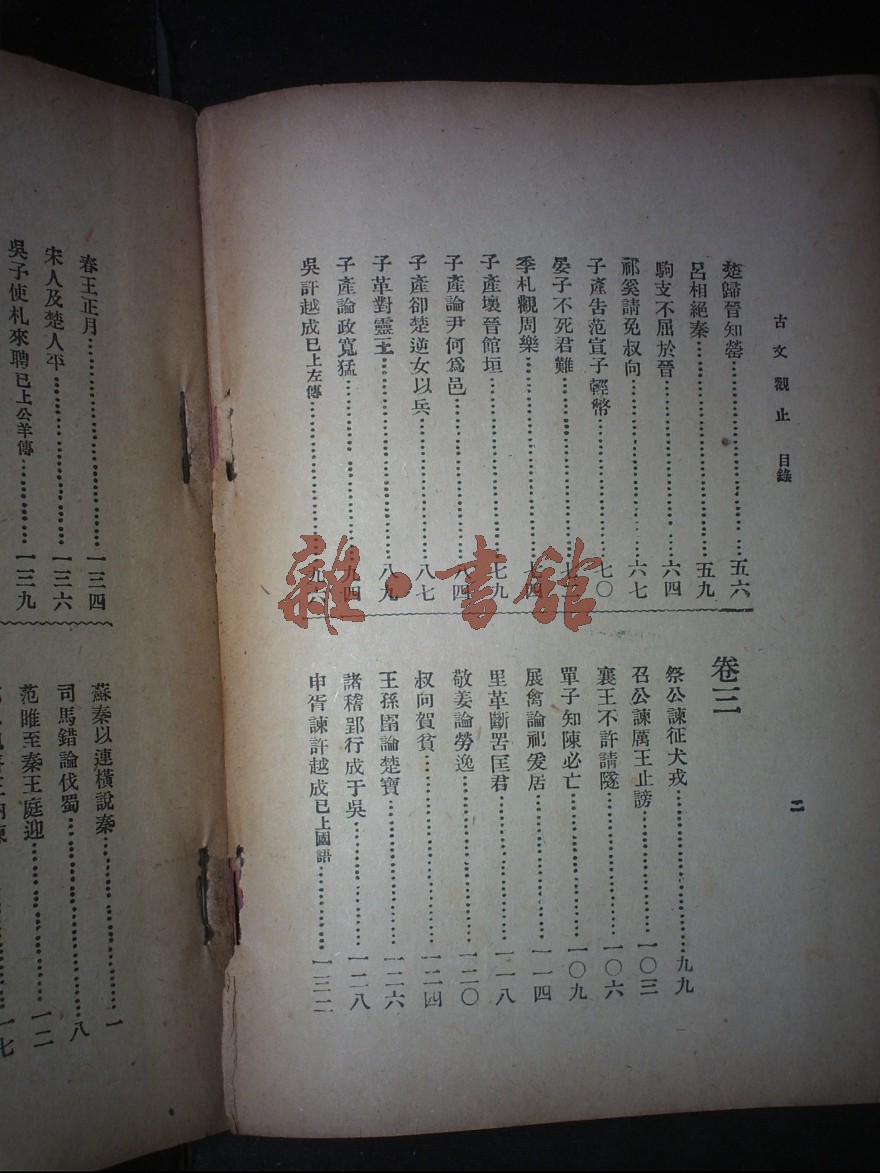 古文觀止 目錄 二
楚歸晉知罃 五六
呂相絕秦 五九
駒支不屈於晉 六四
祁奚請免叔向 六七
子產告范宣子輕幣 七〇
晏子不死君難
季札觀周樂 七四
子產壞晉館垣 七九
子產論尹何爲邑 八四
子產卻楚逆女以兵 八七
子革對靈王 八九
子產論政寬猛 九四
吳許越成已上左傳
卷三
祭公諫征犬戎 九九
召公諫厲王止謗 一〇三
襄王不許請隧 一〇六
單子知陳必亡 一〇九
展禽論祀爰居 一一四
里革斷罟匡君 一一八
敬姜論勞逸 一二〇
叔向賀貧 一二四
王孫圉論楚寶 一二六
諸稽郢行成于吳 一二八
申胥諫許越成已上國語 一三二
春王正月 一三四
宋人及楚人平 一三六
吳子使札來聘已上公羊傳 一三九
蘇秦以連橫說秦 一
司馬錯論伐蜀 八
范雎至秦王庭迎 一二
一七
雜·書館